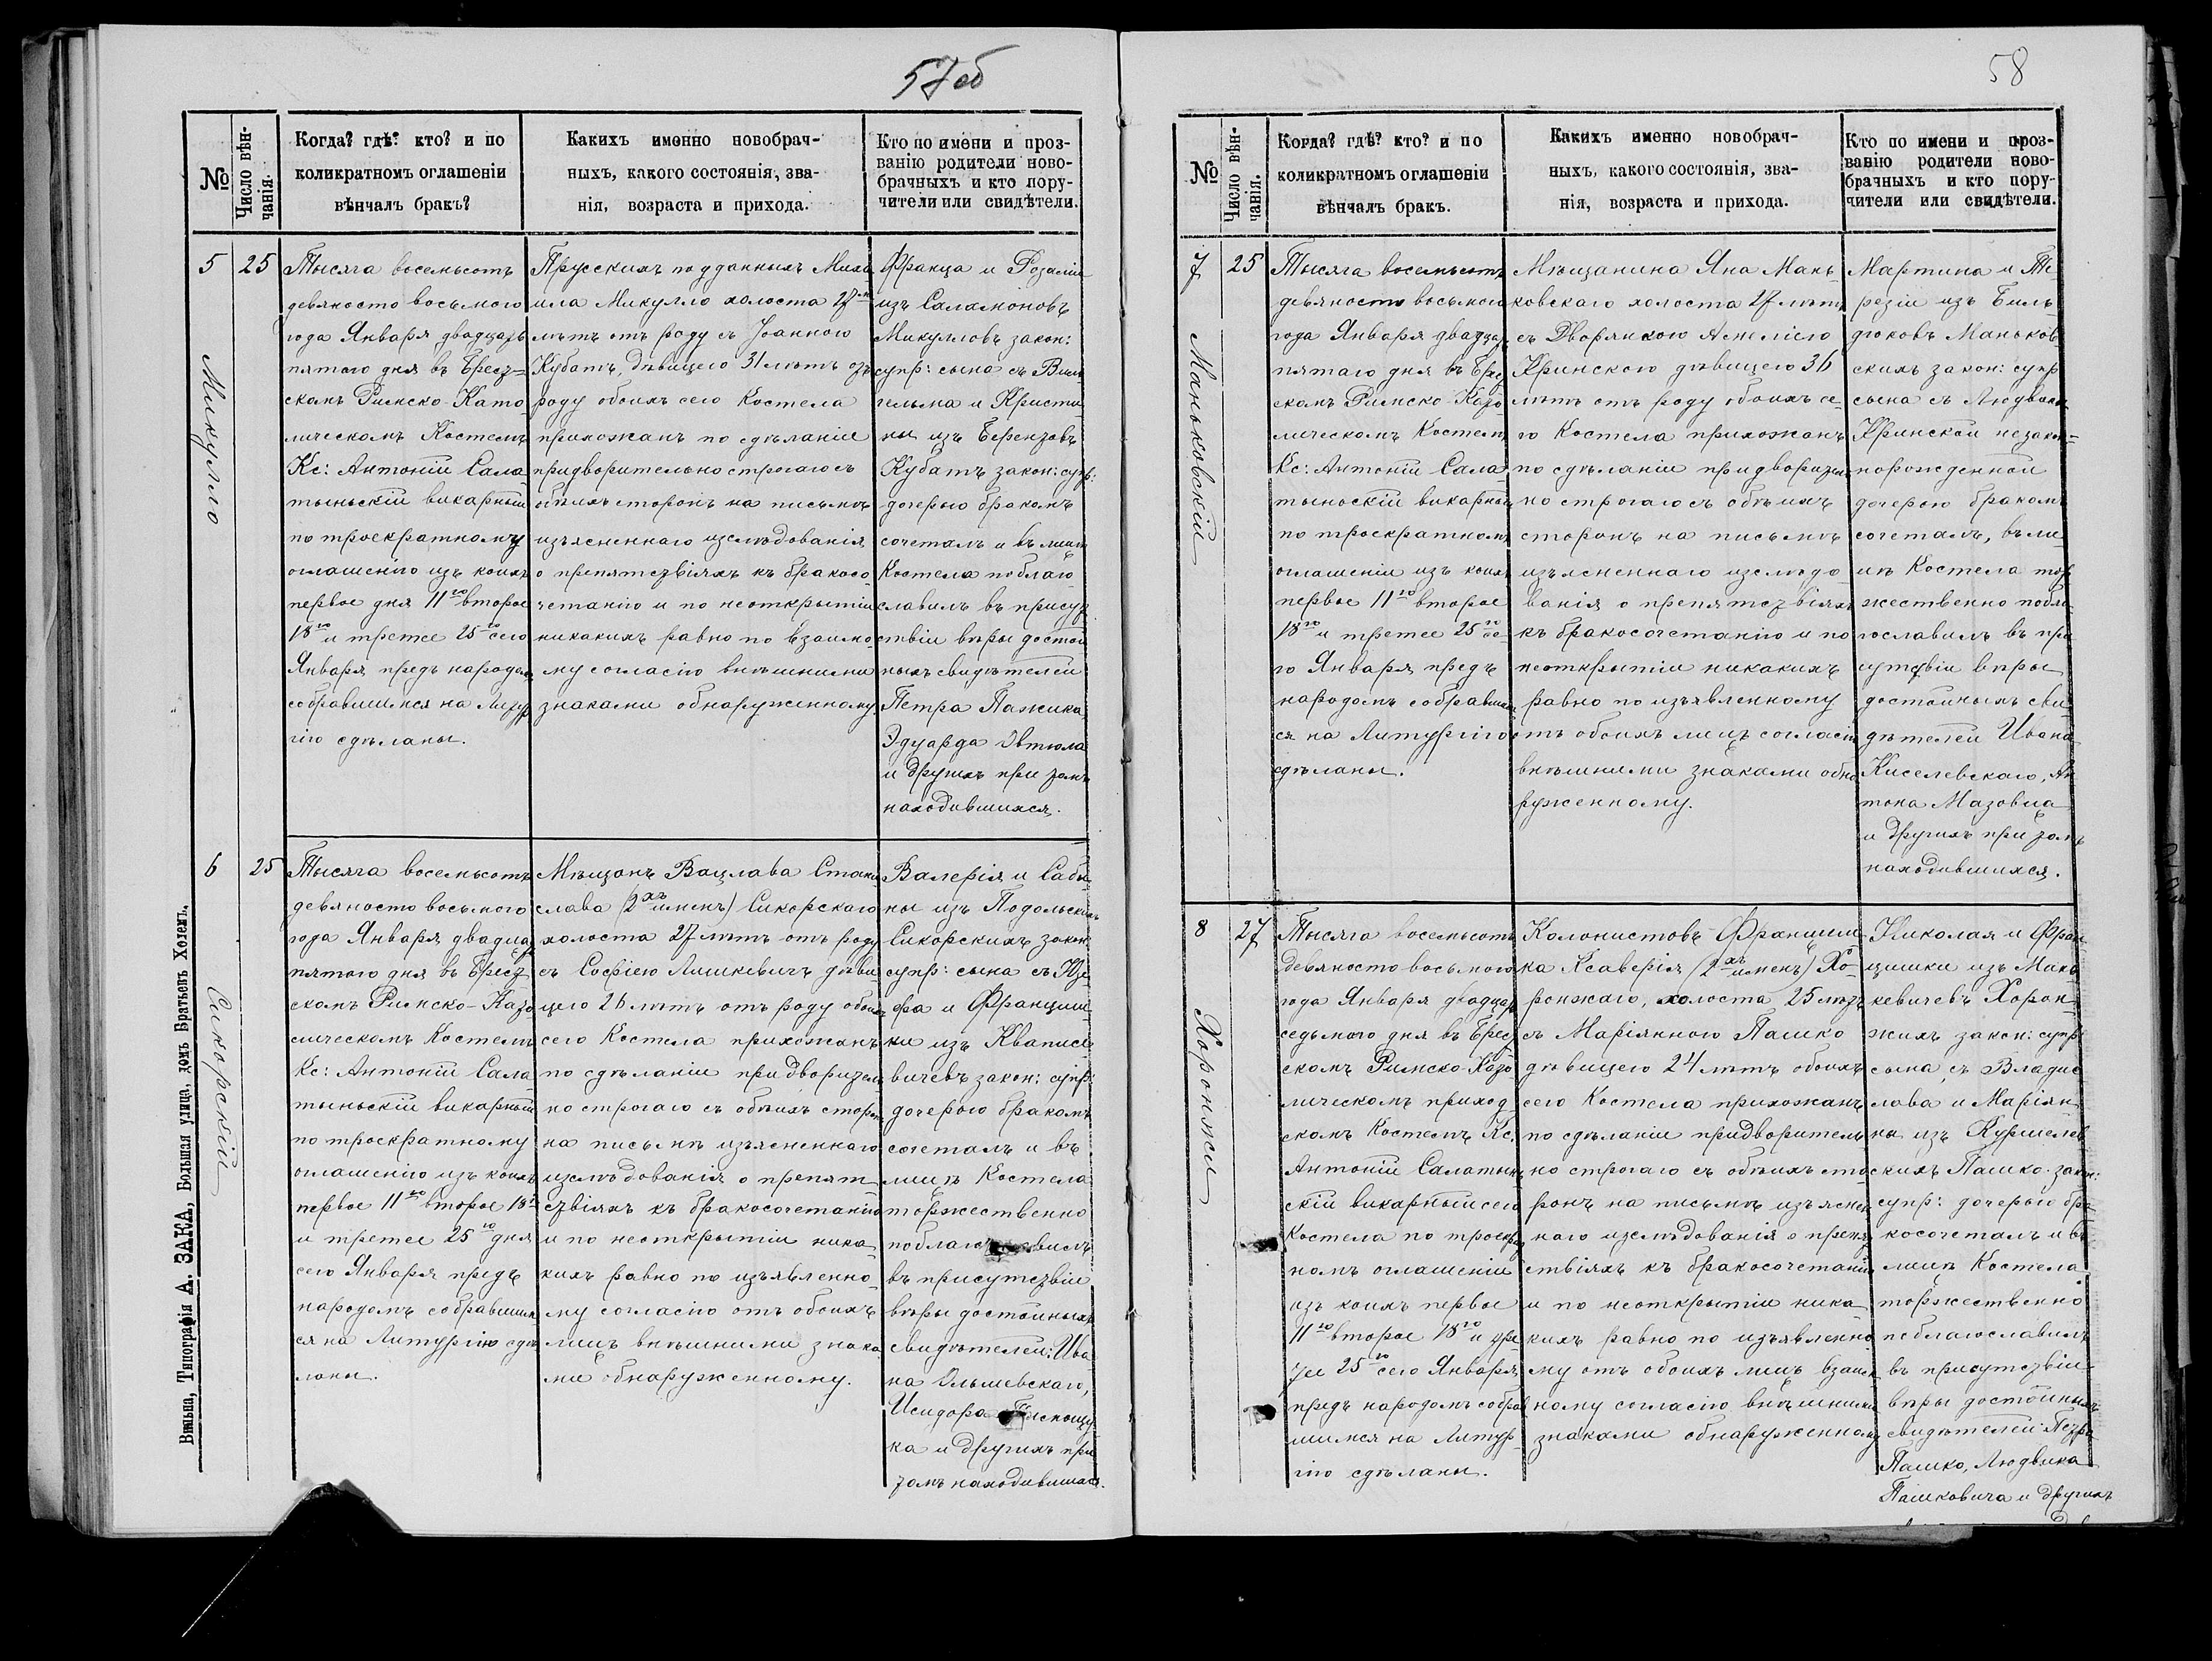 57об
№
Число вѣн-
чанія.
Когда? гдѣ? кто? и по
коликратномъ оглашеніи
вѣнчалъ бракъ?
Какихъ именно новобрач-
ныхъ, какого состоянія, зва-
нія, возраста и прихода.
Кто по имени и проз-
ванію родители ново-
брачныхъ и кто пору-
чители или свидѣтели.
5
25
Микулло
Тысяча восемьсотъ
девяносто восьмого
года Января двадцать
пятаго дня въ Брест-
скомъ Римско-Като
лическомъ Костелѣ
Кс: Антоній Сала
тыньскій викарный
по троекратному
оглашенію изъ коихъ
первое дня 11го второе
18го и третее 25го сего
Января предъ народомъ
собравшимся на Литур
гію сдѣланы.
Прусскихъ подданныхъ Миха
ила Микулло холоста 27ми
лѣтъ отъ роду съ Іоанною
Кубатъ, дѣвицею 31 лѣтъ отъ
роду обоихъ сего Костела
прихожанъ по сдѣланіи
предворительно строгаго съ
обѣихъ сторонъ на письмѣ
изъясненнаго изслѣдованія
о препятствіяхъ къ бракосо
четанію и по неоткрытіи
никакихъ равно по взаимно
му согласію внѣшними
знаками обнаруженному.
Франца и Розаліи
изъ Саламоновъ
Микулловъ закон:
супр: сына съ Виль
гельма и Кристи
ны изъ Берензовъ
Кубатъ закон: супр:
дочерью бракомъ
сочеталъ и въ лицѣ
Костела поблаго
славилъ въ присут
ствіи вѣры достой
ныхъ свидѣтелей
Петра Пажика
Эдуарда Эвтюла
и другихъ при томъ
находившихся.
6
25
Сикорскій
Тысяча восемьсотъ
девяносто восьмого
года Января двадцать
пятого дня въ Брест
скомъ Римско-Като
лическомъ Костелѣ
Кс: Антоній Сала
тыньскій викарный
по троекратному
оглашенію изъ коихъ
первое 11го второе 18го
и третее 25го дня
сего Января предъ
народомъ собравшим
ся на Литургію сдѣ
ланы.
Мѣщанъ Вацлава Стани
слава (2хъ именъ) Сикорскаго
холоста 27 лѣтъ отъ роду
съ Софіею Лишкевичъ дѣви
цею 26 лѣтъ отъ роду обоихъ
сего Костела прихожанъ
по сдѣланіи придворитель
но строгаго съ обѣихъ сторонъ
на письмѣ изъясненнаго
изслѣдованія о препят
ствіяхъ къ бракосочетанію
и по неоткрытіи ника
кихъ равно по изъявленно
му согласію отъ обоихъ
лицъ внѣшними знака
ми обнаруженному.
Валерія и Саби
ны изъ Подольскихъ
Сикорскихъ закон:
супр: сына съ Юзе
фа и Франциш
ки изъ Кваписе
вичевъ закон: супр:
дочерью бракомъ
сочеталъ и въ
лицѣ Костела
торжественно
поблагославилъ
въ присутствіи
вѣры достойныхъ
свидѣтелей: Ива
на Ольшевскаго,
Исидора
ка и другихъ при
томъ находившихся.
Вильна, Типографія А. ЗАКА, Большая улица, домъ Братьевъ Холемъ.
58
№
Число вѣн-
чанія.
Когда? гдѣ? кто? и по
коликратномъ оглашеніи
вѣнчалъ бракъ.
Какихъ именно новобрач-
ныхъ, какого состоянія, зва-
нія, возраста и прихода.
Кто по имени и проз-
ванію родители ново-
брачныхъ и кто пору-
чители или свидѣтели.
7
25
Маньковскій
Тысяча восемьсотъ
девяносто восьмого
года Января двадцать
пятаго дня въ Брест
скомъ Римско-Като
лическомъ Костелѣ
Кс: Антоній Сала
тыньскій викарный
по троекратномъ
оглашеніи изъ коихъ
первое 11го второе
18го и третее 25го се-
го Января предъ
народомъ собравшим
ся на Литургію
сдѣланы.
Мѣщанина Яна Мань
ковскаго холоста 27 лѣтъ
съ Дворянкою Анеліею
Кринскою дѣвицею 36
лѣтъ отъ роду обоихъ се-
го Костела прихожанъ
по сдѣланіи придворитель
но строгаго съ обѣихъ
сторонъ на письмѣ
изъясненнаго изслѣдо
ванія о препятствіяхъ
къ бракосочетанію и по
неоткрытіи никакихъ
равно по изъявленному
отъ обоихъ лицъ согласію
внѣшними знаками обна
руженному.
Мартина и Те
резіи изъ Биль
дюковъ Маньков
скихъ закон: супр
сына съ Людвики
Кринской незакон-
норожденной
дочерью бракомъ
сочеталъ, въ ли
цѣ Костела тор
жественно побла
гославилъ въ при
сутствіи вѣры
достойныхъ сви
дѣтелей Ивана
Киселевскаго, Ан
тона Мазовца
и другихъ при томъ
находившихся.
8
27
Хоронжи
Тысяча восемьсотъ
девяносто восьмого
года Января двадцать
седьмого дня въ Брест
скомъ Римско-Като
лическомъ приход
скомъ Костелѣ Кс:
Антоній Салатынь
скій викарный сего
Костела по троекрат
номъ оглашеніи
изъ коихъ первое
11го второе 18го и тре
тее 25го сего Января
предъ народомъ собрав
шимся на Литур
гію сдѣланы.
Колонистовъ Францишка
ка Ксаверія (2хъ именъ) Хо-
ронжаго, холоста 25 лѣтъ
съ Маріянною Пашко
дѣвицею 24 лѣтъ обоихъ
сего Костела прихожанъ
по сдѣланіи придворитель
но строгаго съ обѣихъ сто
ронъ на письмѣ изъяснен
наго изслѣдованія о препят
ствіяхъ къ бракосочетанію
и по неоткрытіи ника
кихъ равно по изъявленно
му отъ обоихъ лицъ взаим
ному согласію внѣшними
знаками обнаруженному
Николая и Фран
цишки изъ Мань
кевичевъ Хорон
жихъ закон: супр
сына, съ Владис
лава и Маріян
ны изъ Куршелев
скихъ Пашко закон:
супр: дочерью бра-
косочеталъ и въ
лицѣ Костела
торжественно
поблагославилъ
въ присутствіи
вѣры достойныхъ
свидѣтелей Петра
Пашко, Людвика
Пашковича и другихъ